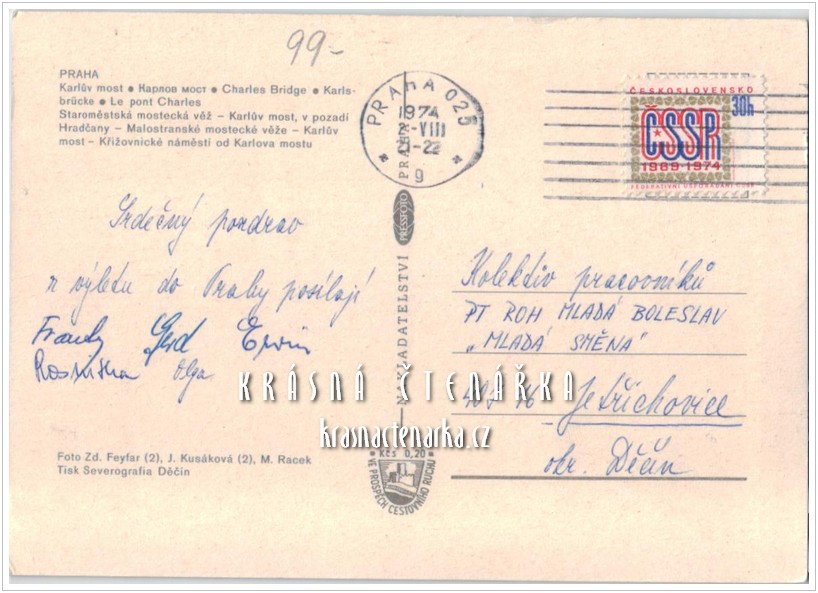 99-
PRAHA
Karlův most ● Карлов мост ● Charles Bridge ● Karls-
brücke ● Le pont Charles
Staroměstská mostecká věž – Karlův most, v pozadí
Hradčany – Malostranské mostecké věže – Karlův
most – Křižovnické náměstí od Karlova mostu
PRAHA 025
1974
-VIII
-22
9
ČESKOSLOVENSKO
30h
ČSSR
1969-1974
FEDERATIVNÍ USPOŘÁDÁNÍ ČSSR
Srdečný pozdrav
z výletu do Prahy posílají
Gerd Erwin
Olga
PRAHA
PRESSFOTO
NAKLADATELSTVÍ
Kolektiv pracovníků
PT ROH MLADÁ BOLESLAV
„MLADÁ SMĚNA"
407 16 Jetřichovice
okr. Děčín
KRÁSNÁ ČTENÁŘKA
krasnactenarka.cz
Foto Zd. Feyfar (2), J. Kusáková (2), M. Racek
Tisk Severografia Děčín
Kčs 0,20
VE PROSPĚCH CESTOVNÍHO RUCHU